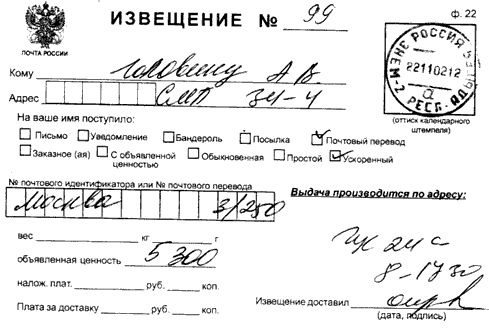 ИЗВЕЩЕНИЕ № 99
ф. 22
ПОЧТА РОССИИ
Кому Головину А В
Адрес СМП 34-4
РОССИЯ
2211 0212
а
(оттиск календарного штемпеля)
На ваше имя поступило:
Письмо Уведомление Бандероль Посылка Почтовый перевод
Заказное (ая) С объявленной ценностью Обыкновенная Простой Ускоренный
№ почтового идентификатора или № почтового перевода
Москва 3/250
Выдача производится по адресу:
вес кг г
объявленная ценность 5 300
8-1730
налож. плат. руб. коп.
Извещение доставил
Плата за доставку руб. коп.
(дата, подпись)